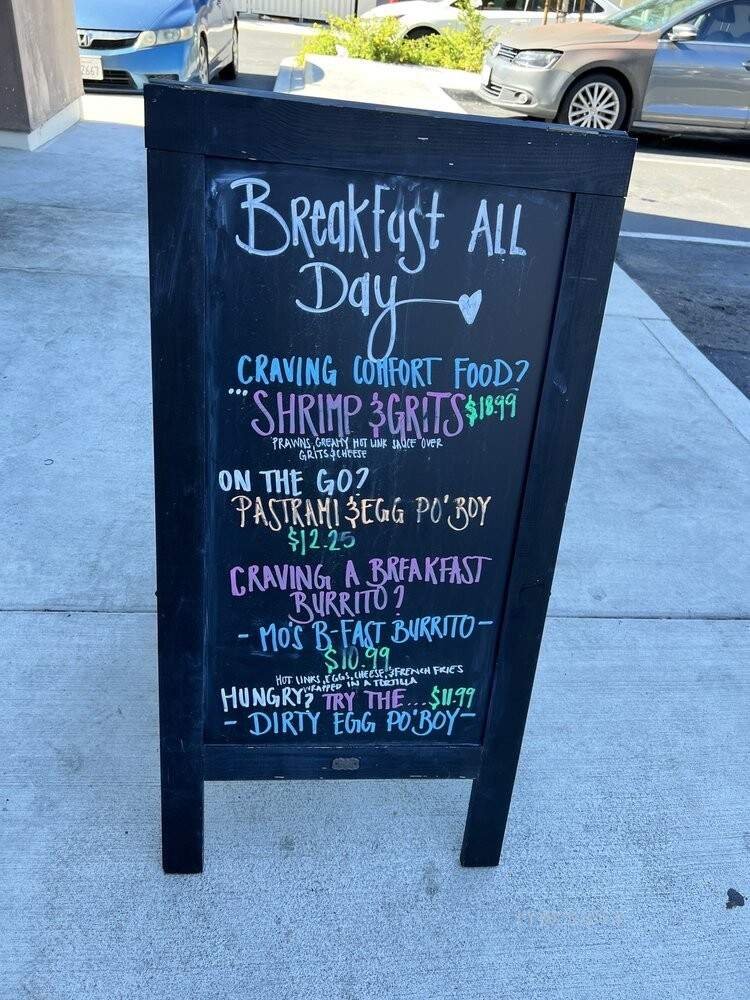 Breakfast All
Day
CRAVING COMFORT FOOD?
... SHRIMP & GRITS $18.99
PRAWNS, CREAMY HOT LINK SAUCE OVER
GRITS & CHEESE
ON THE GO?
PASTRAMI & EGG PO'BOY
$12.25
CRAVING A BREAKFAST
BURRITO?
- MO'S B-FAST BURRITO -
$10.99
HOT LINKS, EGGS, CHEESE, & FRENCH FRIES
WRAPPED IN A TORTILLA
HUNGRY? TRY THE... $11.99
- DIRTY EGG PO'BOY -